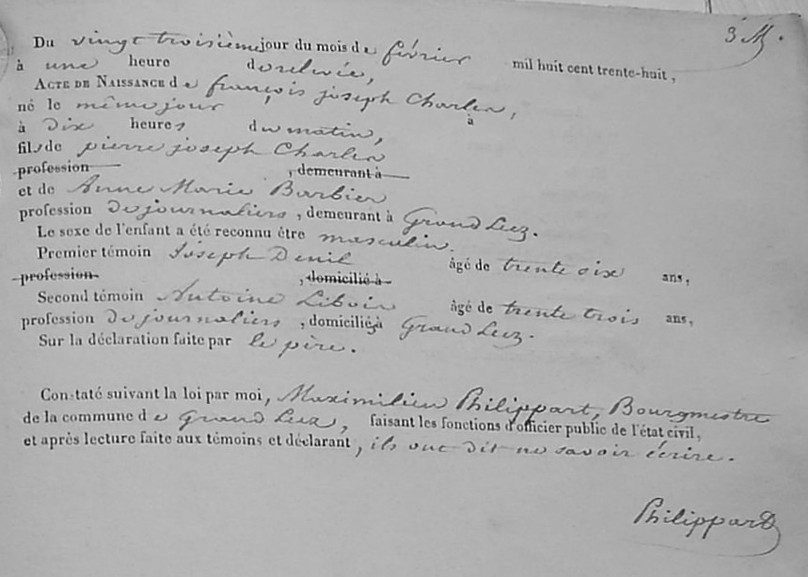 3 M.
Du vingt troisième jour du mois de février mil huit cent trente-huit,
à une heure de relevée,
ACTE DE NAISSANCE de françois joseph Charlier,
né le même jour à
à dix heures du matin,
fils de pierre joseph Charlier
profession , demeurant à
et de Anne Marie Barbier
profession de journaliers, demeurant à Grand Leez.
Le sexe de l'enfant a été reconnu être masculin.
Premier témoin Joseph Denil âgé de trente six ans,
profession , domicilié à
Second témoin Antoine Liboin âgé de trente trois ans,
profession de journaliers, domiciliés à Grand Leez.
Sur la déclaration faite par le père.
Constaté suivant la loi par moi, Maximilien Philippart, Bourgmestre
de la commune de Grand Leez, faisant les fonctions d'officier public de l'état civil,
et après lecture faite aux témoins et déclarant, ils ont dit ne savoir écrire.
Philippart